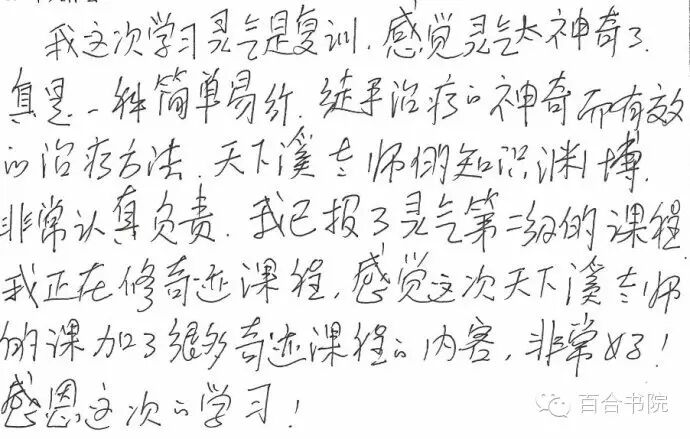 我这次学习灵气是复训,感觉灵气太神奇了.
真是一种简单易行,徒手治疗的神奇而有效
的治疗方法.天下溪老师的知识渊博,
非常认真负责.我已报了灵气第二级的课程
我正在修奇迹课程,感觉这次天下溪老师
的课加了很多奇迹课程的内容,非常好!
感恩这次的学习!
百合书院